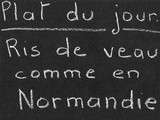 Plat du jour
Ris de veau
comme en
Normandie